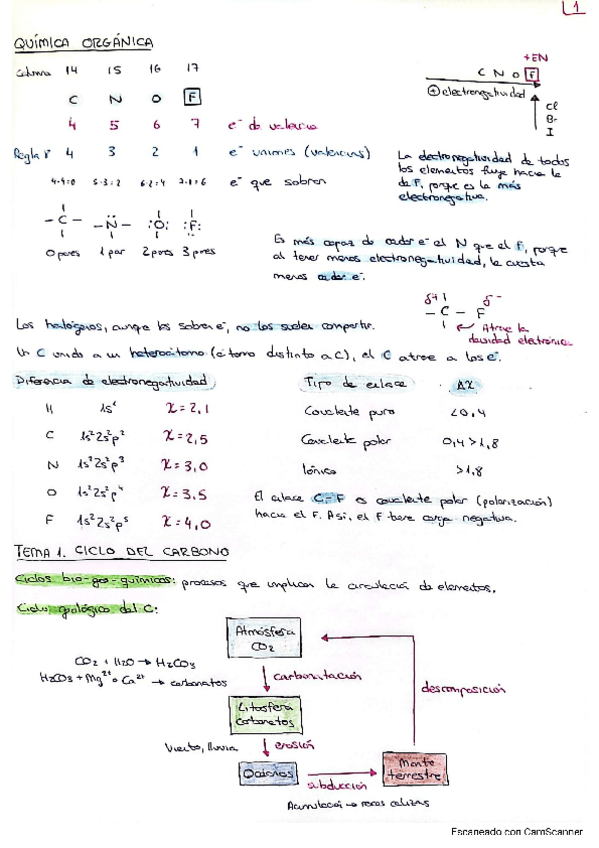 1
QUÍMICA ORGÁNICA
Columna 14 15 16 17
C N O F
4 5 6 7 e⁻ de valencia
Regla 8 4 3 2 1 e⁻ uniones (valencias)
4-4=0 5-3=2 6-2=4 7-1=6 e⁻ que sobran
-C- -N- :O: :F:
0 pares 1 par 2 pares 3 pares
+EN
C N O F
+ electronegatividad
Cl
Br
I
La electronegatividad de todos
los elementos fluye hacia la
de F, porque es la más
electronegativa.
Es más capaz de ceder e⁻ el N que el F, porque
al tener menos electronegatividad, le cuesta
menos ceder e⁻.
δ+ δ-
- C - F
Atrae la
densidad electrónica.
Los halógenos, aunque les sobran e⁻, no los suelen compartir.
Un C unido a un heteroátomo (átomo distinto a C), el C atrae a los e⁻.
Diferencia de electronegatividad
H 1s¹ X=2,1
C 1s²2s²p² X=2,5
N 1s²2s²p³ X=3,0
O 1s²2s²p⁴ X=3,5
F 1s²2s²p⁵ X=4,0
Tipo de enlace ΔX
Covalente puro <0,4
Covalente polar 0,4>1,8
Iónico >1,8
El enlace C-F es covalente polar (polarización)
hacia el F. Así, el F tiene carga negativa.
TEMA 1. CICLO DEL CARBONO
Ciclos bio-geo-químicos: procesos que implican la circulación de elementos.
Ciclo geológico del C:
Atmósfera
CO₂
CO₂ + H₂O → H₂CO₃
H₂CO₃ + Mg²⁺ o Ca²⁺ → carbonatos
carbonatación
descomposición
Litosfera
carbonatos
Viento, lluvia
erosión
Océanos
subducción
Manto
terrestre
Acumulación → rocas calizas
Escaneado con CamScanner